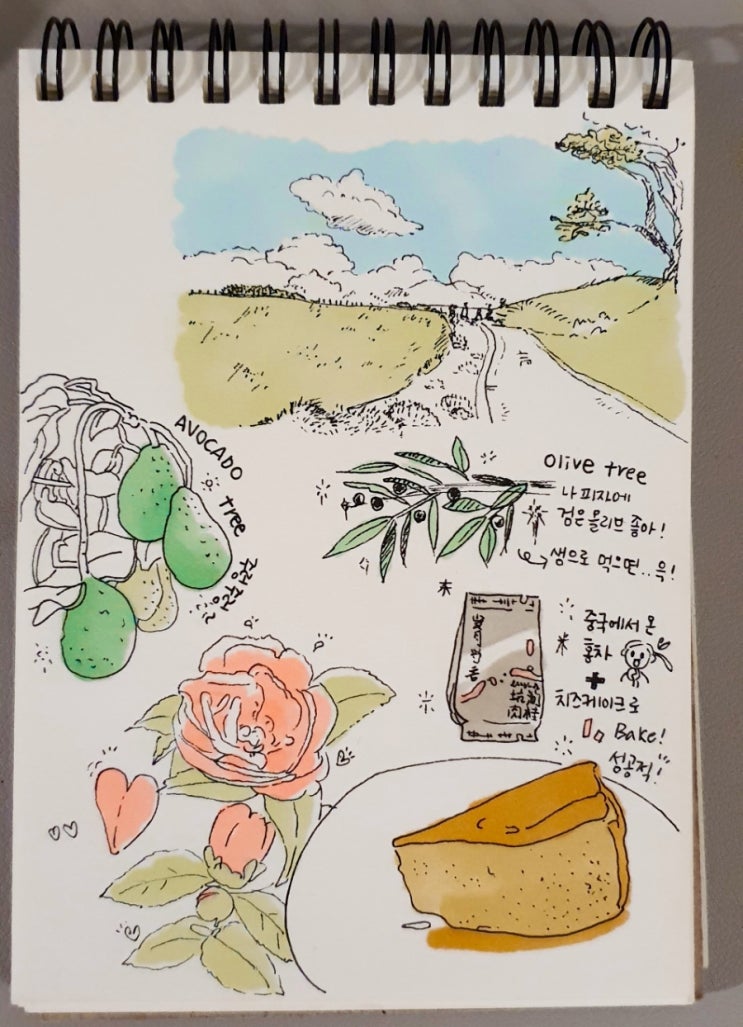 AVOCADO tree
olive tree
나 피자에
검은 올리브 좋아!
쌩으로 먹으면..윽!
岁月
肉桂
중국에서 온
홍차
+
치즈케이크로
Bake!
성공적!